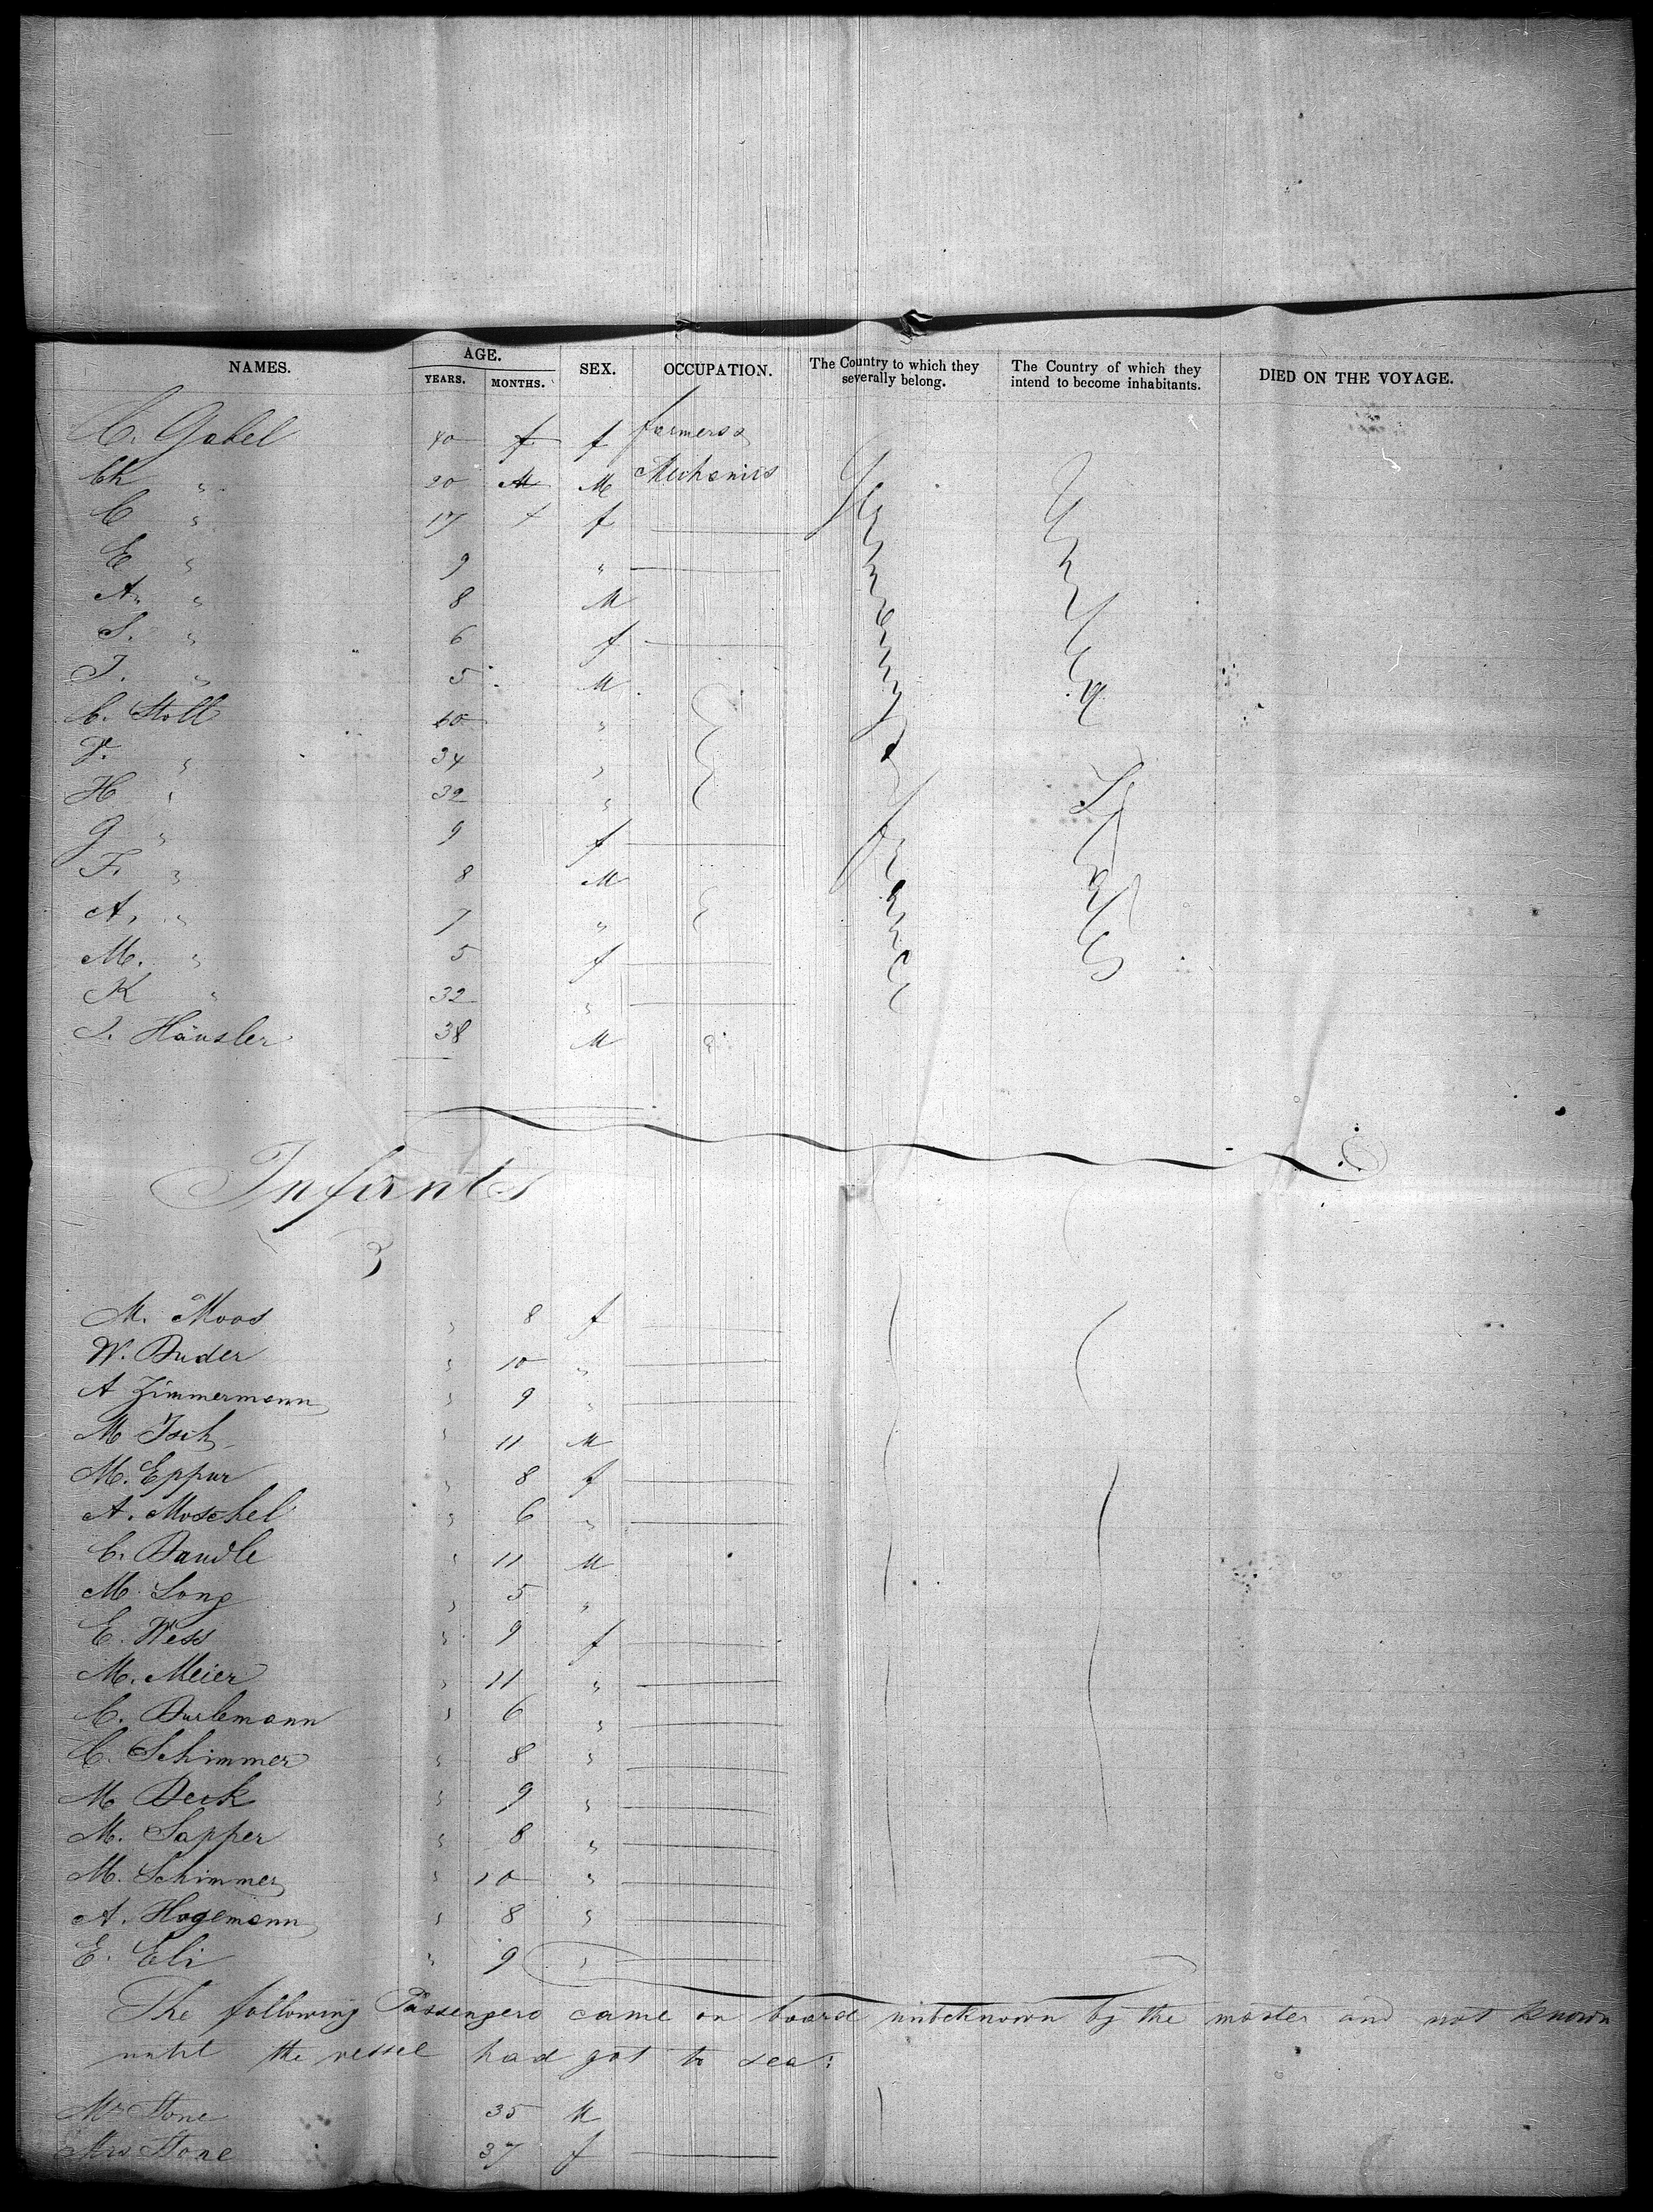 NAMES. AGE. YEARS. MONTHS. SEX. OCCUPATION. The Country to which they severally belong. The Country of which they intend to become inhabitants. DIED ON THE VOYAGE.
C. Gabel 40 f f farmers &
Ch " 20 M M Mechanics
C " 17 f f
E " 9 "
A. " 8 M
S. " 6 f
J. " 5 M
C. Stoll 40 "
F. " 34 "
H " 32 "
G " 9 f
F. " 8 M
A. " 7 "
M. " 5 f
K " 32 "
J. Häusler 38 M
Germany & France
United States
Infants
M. Moos " 8 f
W. Buder " 10 "
A Zimmermann " 9 "
M Isch " 11 M
M. Eppur " 8 f
A. Moschel " 6 "
C. Bandle " 11 M
M. Long " 5 "
E. Wess " 9 f
M. Meier " 11 "
C. Burlemann " 6 "
C. Schimmer " 8 "
M Beck " 9 "
M. Sapper " 8 "
M. Schimmer " 10 "
A. Hagemann " 8 "
E. Eli " 9 "
The following Passengers came on board unbeknown by the master and not known
until the vessel had got to sea:
Mr Stone 35 M
Mrs Stone 37 f